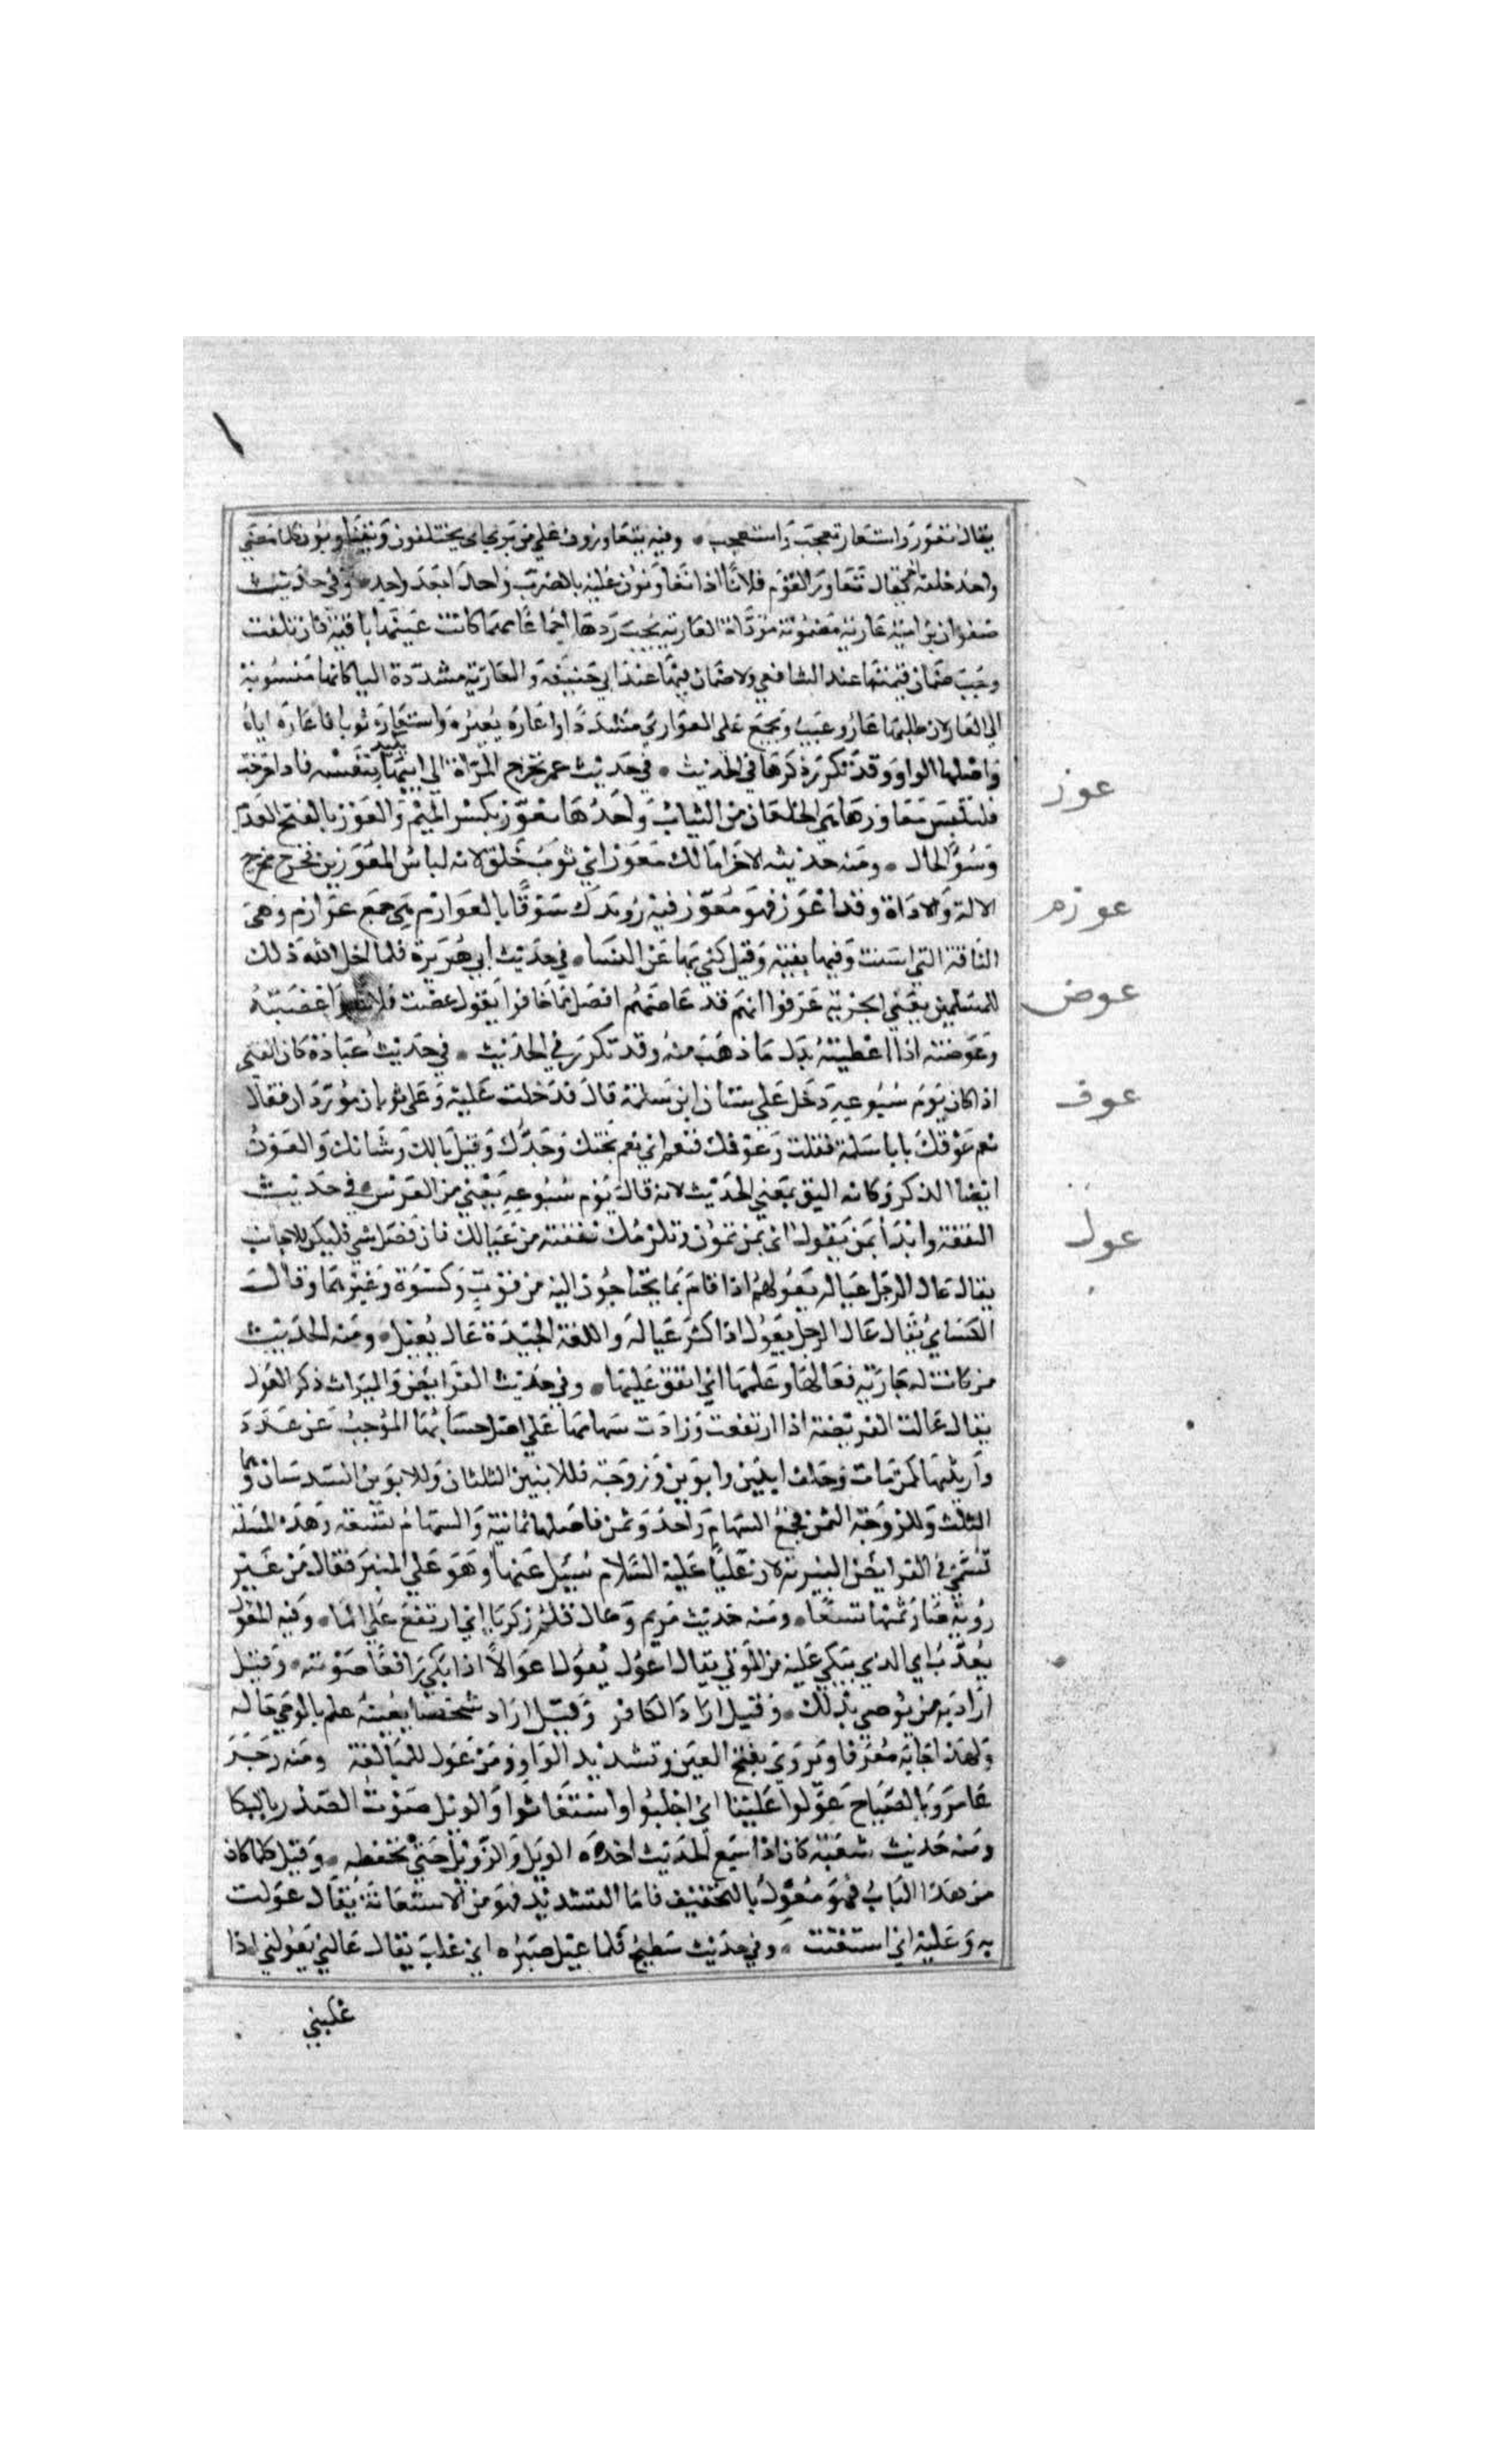 يقال تعور واستعار تعجب واستعجب وفيه يتعاورون على منبري اي يختلفون ويتناوبون كلما مضى
واحد خلفه اخر يقال تعاور القوم فلانا اذا تعاونوا عليه بالضرب واحدا بعد واحد وفي حديث
صفوان بن امية عارية مضمونة مؤداة العارية يجب ردها اجماعا مهما كانت عينها باقية فان تلفت
وجب ضمان قيمتها عند الشافعي ولا ضمان فيها عند ابي حنيفة والعارية مشددة اليا كانها منسوبة
الى العار لان طلبها عار وعيب وتجمع على العواري مشددا واعاره يعيره واستعاره ثوبا فاعاره اياه
واصلها الواو وقد تكرر ذكرها في الحديث في حديث عمر تخرج المراة الى ابيها يكيد بنفسه فاذا خرجت
فلتلبس معاوزها هي الخلقان من الثياب واحدها معوز بكسر الميم والعوز بالفتح العدم
وسوء الحال ومنه حديثه الاخر اما لك معوز اي ثوب خلق لانه لباس المعوزين فخرج مخرج
الالة والاداة وقد اعوز فهو معوز فيه رويدك سوقا بالعوازم هي جمع عوازم وهي
الناقة التي اسنت وفيها بقية وقيل كني بها عن النسا في حديث ابي هريرة فلما احل الله ذلك
للمسلمين يعني الجزية عرفوا انهم قد عاضهم افضل مما خافوا يقول عضت فلانا اعضته
وعوضته اذا اعطيته بدل ما ذهب منه وقد تكرر في الحديث في حديث عبادة كان الفتى
اذا كان يوم سبوعه دخل على سنان ابن سلمة قال فدخلت عليه وعلي ثوبان موردان فقال
نعم عوفك يابا سلمة فقلت وعوفك فنعم اي نعم بختك وجدك وقيل بالك وشانك والعوف
ايضا الذكر وكانه اليق بمعنى الحديث لانه قال يوم سبوعه يعني من العرس في حديث
النفقة وابدا بمن تعول اي بمن تمون وتلزمك نفقته من عيالك فان فضل شي فليكن للاجانب
يقال عال الرجل عياله يعولهم اذا قام بما يحتاجون اليه من قوت وكسوة وغيرهما وقال
الكسائي يقال عال الرجل يعول اذا كثر عياله واللغة الجيدة عال يعيل ومنه الحديث
من كانت له جارية فعالها وعلمها اي انفق عليها وفي حديث الفرائض والميراث ذكر العول
يقال عالت الفريضة اذا ارتفعت وزادت سهامها على اصل حسابها الموجب عن عدد
وارثيها كمن مات وخلف ابنتين وابوين وزوجة فللابنتين الثلثان وللابوين السدسان وهما
الثلث وللزوجة الثمن فجمع السهام واحد وثمن فاصلها ثمانية والسهام تسعة وهذه المسلة
تسمى في الفرايض المنبرية لان عليا عليه السلام سيل عنها وهو على المنبر فقال من غير
روية صار ثمنها تسعا ومنه حديث مريم وعال قلم زكريا اي ارتفع على الما وفيه المعول
يعذب اي الذي يبكي عليه من الموتى يقال اعول يعول اعوالا اذا بكى رافعا صوته وقيل
اراد به من يوصي بذلك وقيل اراد الكافر وقيل اراد شخصا بعينه علم بالوحي حاله
ولهذا جا به معرفا ويروى بفتح العين وتشديد الواو ومن عول للمبالغة ومنه رجز
عامر وبالصباح عولوا علينا اي اجلبوا واستغاثوا والويل صوت الصدر بالبكا
ومنه حديث شعبة كان اذا سمع الحديث اخذه الويل والزويل حتى يحفظه وقيل كلما كان
من هذا الباب فهو معول بالتخفيف فاما التشديد فهو من الاستعانة يقال عولت
به وعليه اي استعنت وفي حديث سطيح فلما عيل صبره اي غلب يقال عالني يعولني اذا
غلبني
عوز
عوزم
عوض
عوف
عول